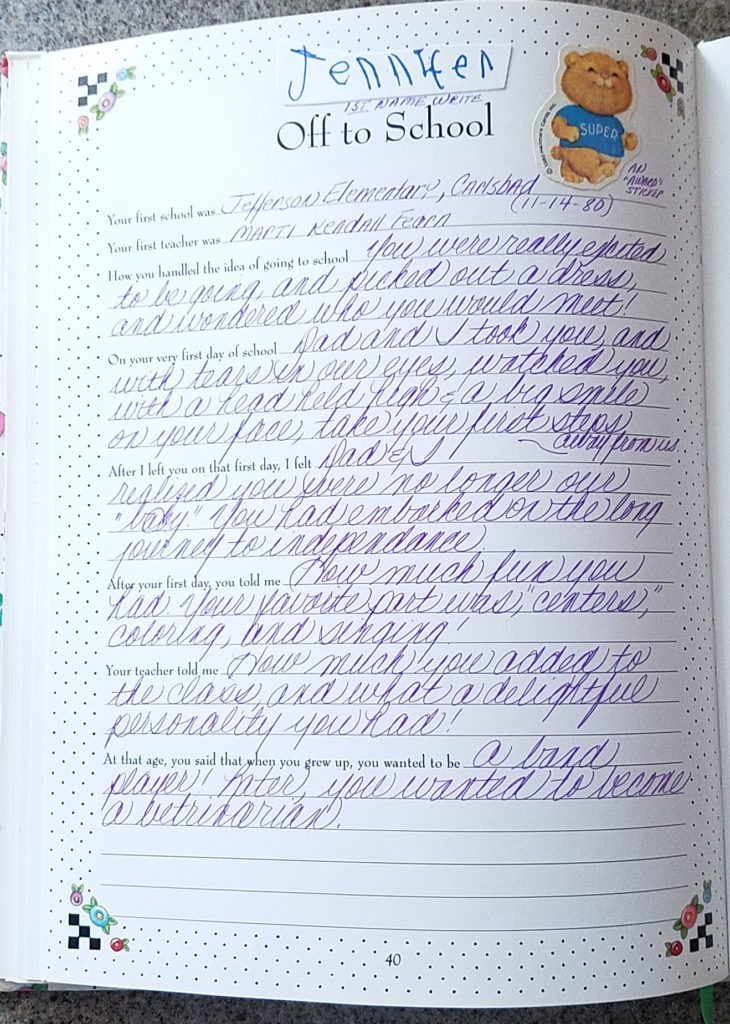 Jennifer
1ST NAME WRITE
SUPER
Off to School
AN
"AWARD"
STICKER
Your first school was Jefferson Elementary, Carlsbad
(11-14-80)
Your first teacher was MARTI Kendall Fearn
How you handled the idea of going to school You were really excited
to be going, and picked out a dress,
and wondered who you would meet!
On your very first day of school Dad and I took you, and
with tears in our eyes, watched you,
with a head held high & a big smile
on your face, take your first steps
away from us.
After I left you on that first day, I felt Dad & I
realized you were no longer our
"baby." You had embarked on the long
journey to independance
After your first day, you told me How much fun you
had. Your favorite part was, "centers,"
coloring, and singing!
Your teacher told me How much you added to
the class, and what a delightful
personality you had!
At that age, you said that when you grew up, you wanted to be a band
player! Later, you wanted to become
a vetrinarian.
40